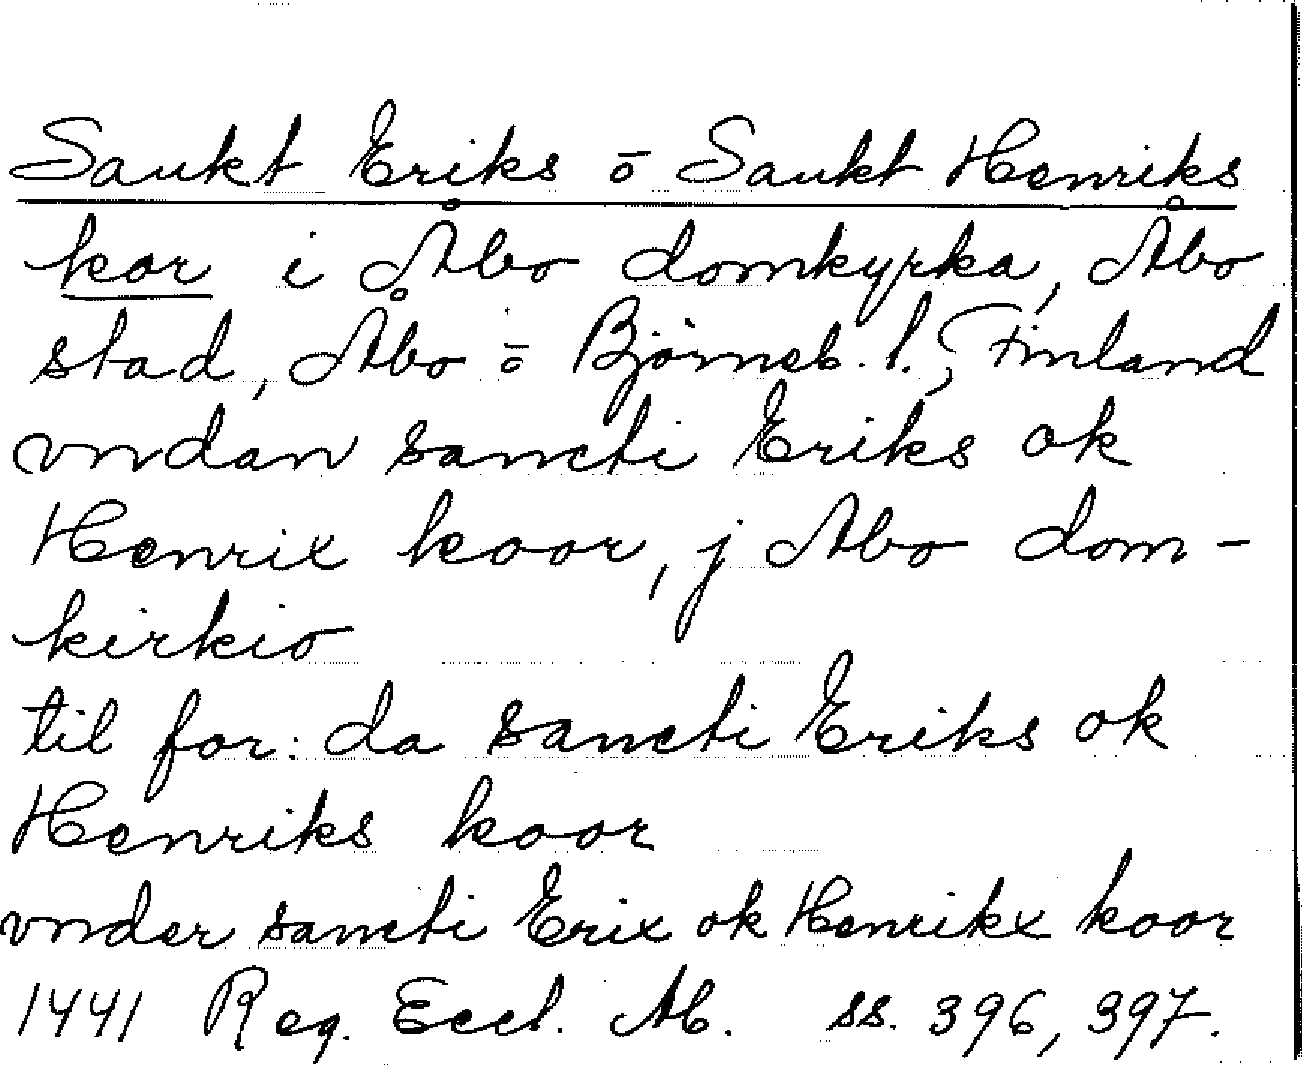 Sankt Eriks o̅ Sankt Henriks
kor i Åbo domkyrka, Åbo
stad, Åbo o̅ Björneb. l., Finland
vndan sancti Eriks ok
Henrix koor, j Abo dom-
kirkio
til for: da sancti Eriks ok
Henriks koor
vnder sancti Erix ok Henrikx koor
1441 Reg. Eccl. Ab. ss. 396, 397.